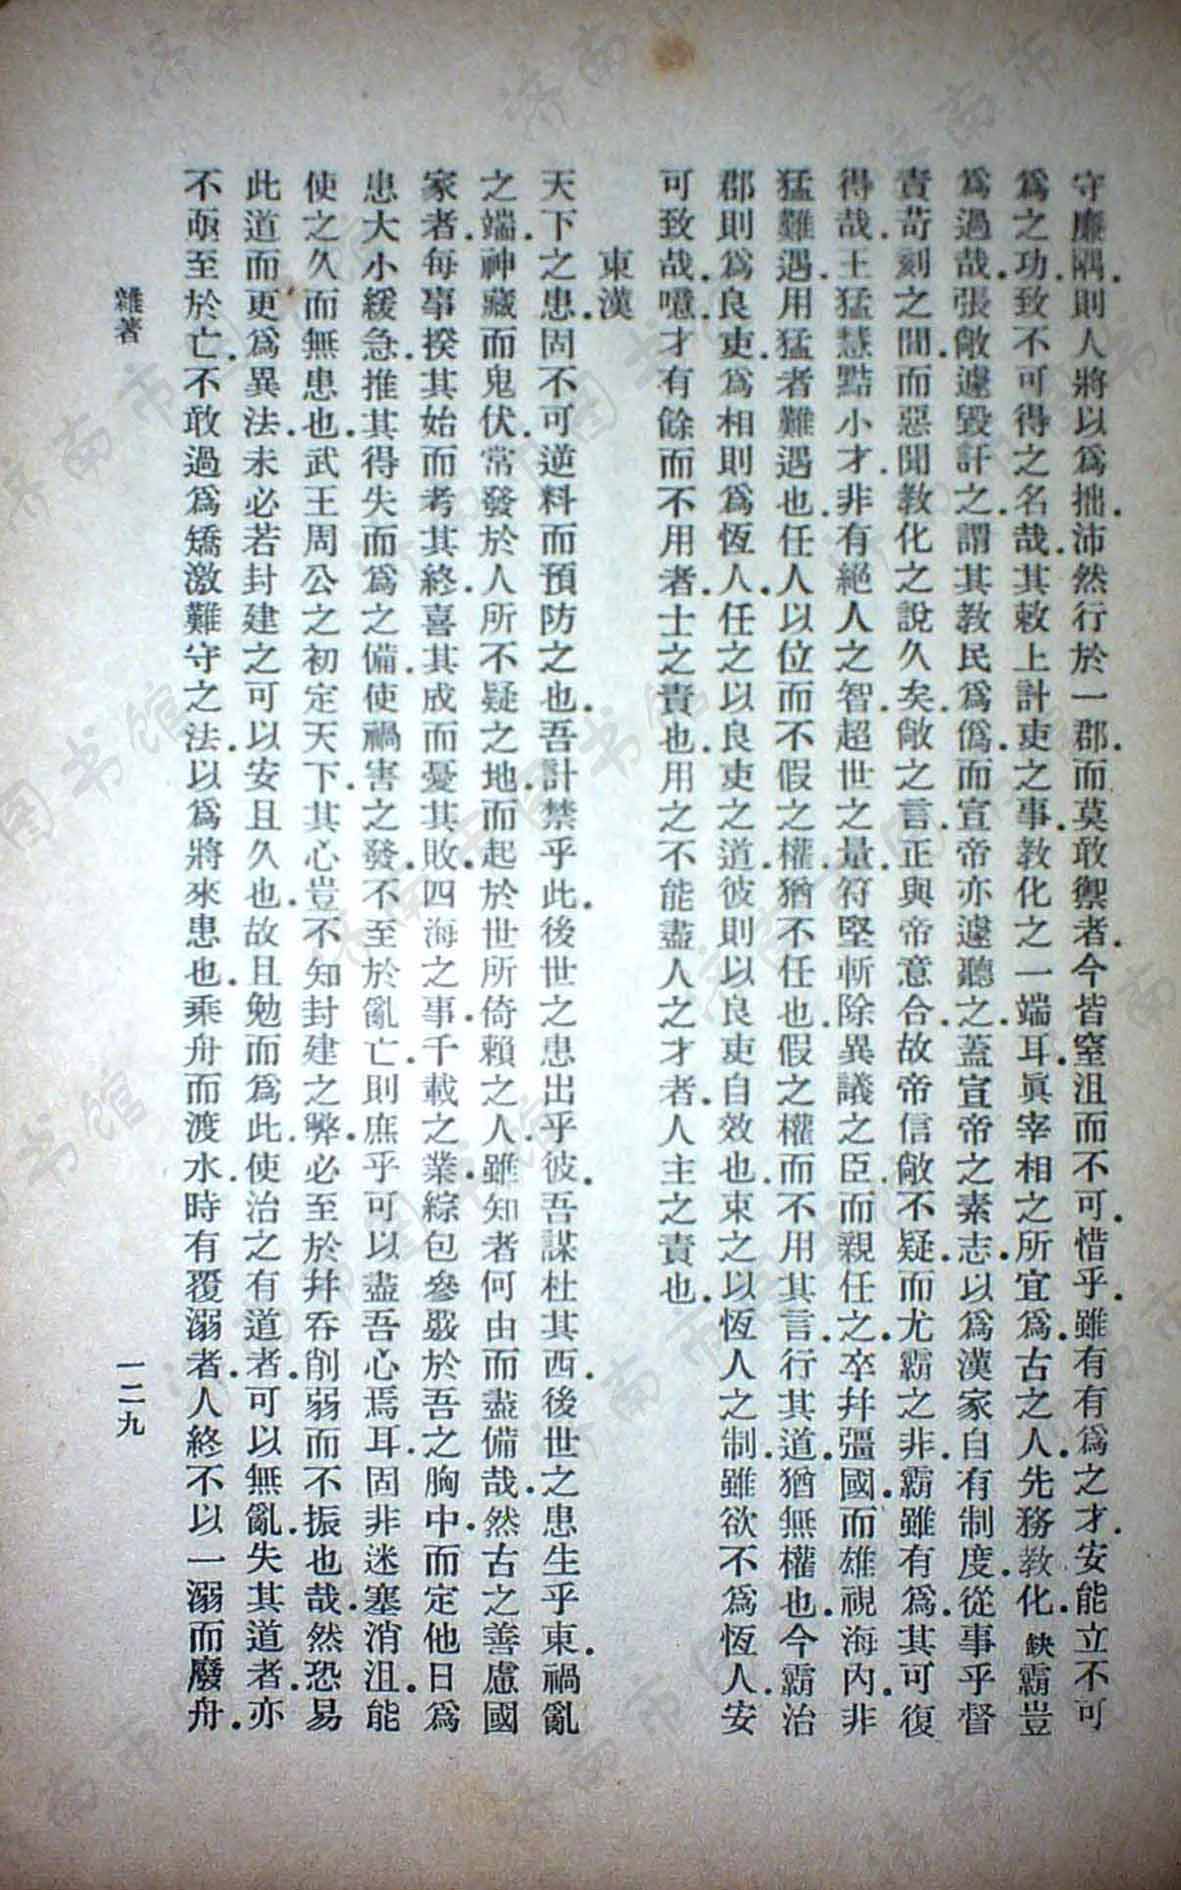 守廉隅則人將以爲拙沛然行於一郡而莫敢禦者今皆窒沮而不可惜乎雖有有爲之才安能立不可
爲之功致不可得之名哉其敕上計吏之事教化之一端耳眞宰相之所宜爲古之人先務教化缺霸豈
爲過哉張敞遽毀訐之謂其教民爲僞而宣帝亦遽聽之蓋宣帝之素志以爲漢家自有制度從事乎督
責苛刻之間而惡聞教化之說久矣敞之言正與帝意合故帝信敞不疑而尤霸之非霸雖有爲其可復
得哉王猛慧黠小才非有絕人之智超世之量符堅斬除異議之臣而親任之卒幷彊國而雄視海內非
猛難遇用猛者難遇也任人以位而不假之權猶不任也假之權而不用其言行其道猶無權也今霸治
郡則爲良吏爲相則爲恆人任之以良吏之道彼則以良吏自效也束之以恆人之制雖欲不爲恆人安
可致哉噫才有餘而不用者士之責也用之不能盡人之才者人主之責也
東漢
天下之患固不可逆料而預防之也吾計禁乎此後世之患出乎彼吾謀杜其西後世之患生乎東禍亂
之端神藏而鬼伏常發於人所不疑之地而起於世所倚賴之人雖知者何由而盡備哉然古之善慮國
家者每事揆其始而考其終喜其成而憂其敗四海之事千載之業綜包參覈於吾之胸中而定他日爲
患大小緩急推其得失而爲之備使禍害之發不至於亂亡則庶乎可以盡吾心焉耳固非迷塞消沮能
使之久而無患也武王周公之初定天下其心豈不知封建之弊必至於幷吞削弱而不振也哉然恐易
此道而更爲異法未必若封建之可以安且久也故且勉而爲此使治之有道者可以無亂失其道者亦
不亟至於亡不敢過爲矯激難守之法以爲將來患也乘舟而渡水時有覆溺者人終不以一溺而廢舟
雜著
一二九